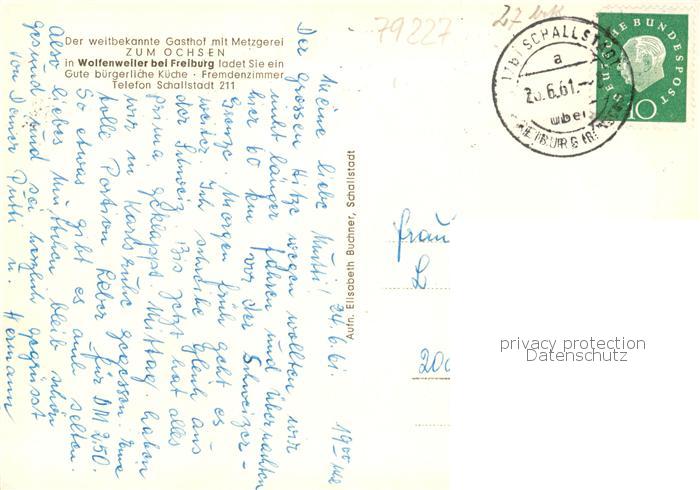 Der weitbekannte Gasthof mit Metzgerei
ZUM OCHSEN
in Wolfenweiler bei Freiburg ladet Sie ein
Gute bürgerliche Küche · Fremdenzimmer
Telefon Schallstadt 211
79227
27
DEUTSCHE BUNDESPOST
10
SCHALLSTADT
a
6.61.-
über
FREIBURG
24.6.61. 1900 Uhr
Meine liebe Mutti!
Der grossen Hitze wegen wollten wir
nicht länger fahren und übernachten
hier 60 km vor der Schweizer-
Grenze. Morgen früh geht es
weiter. Ich schreibe gleich aus
der Schweiz. Bis jetzt hat alles
prima geklappt. Mittag haben
wir in Karlsruhe gegessen. Eine
tolle Portion Leber für DM 2.50.
So etwas gibt es auch selten.
Also liebes Muttchen bleib schön
gesund und sei herzlich gegrüsst
von Deiner Putti u. Hermann
Aufn. Elisabeth Buchner, Schallstadt
Frau
L
200
privacy protection
Datenschutz